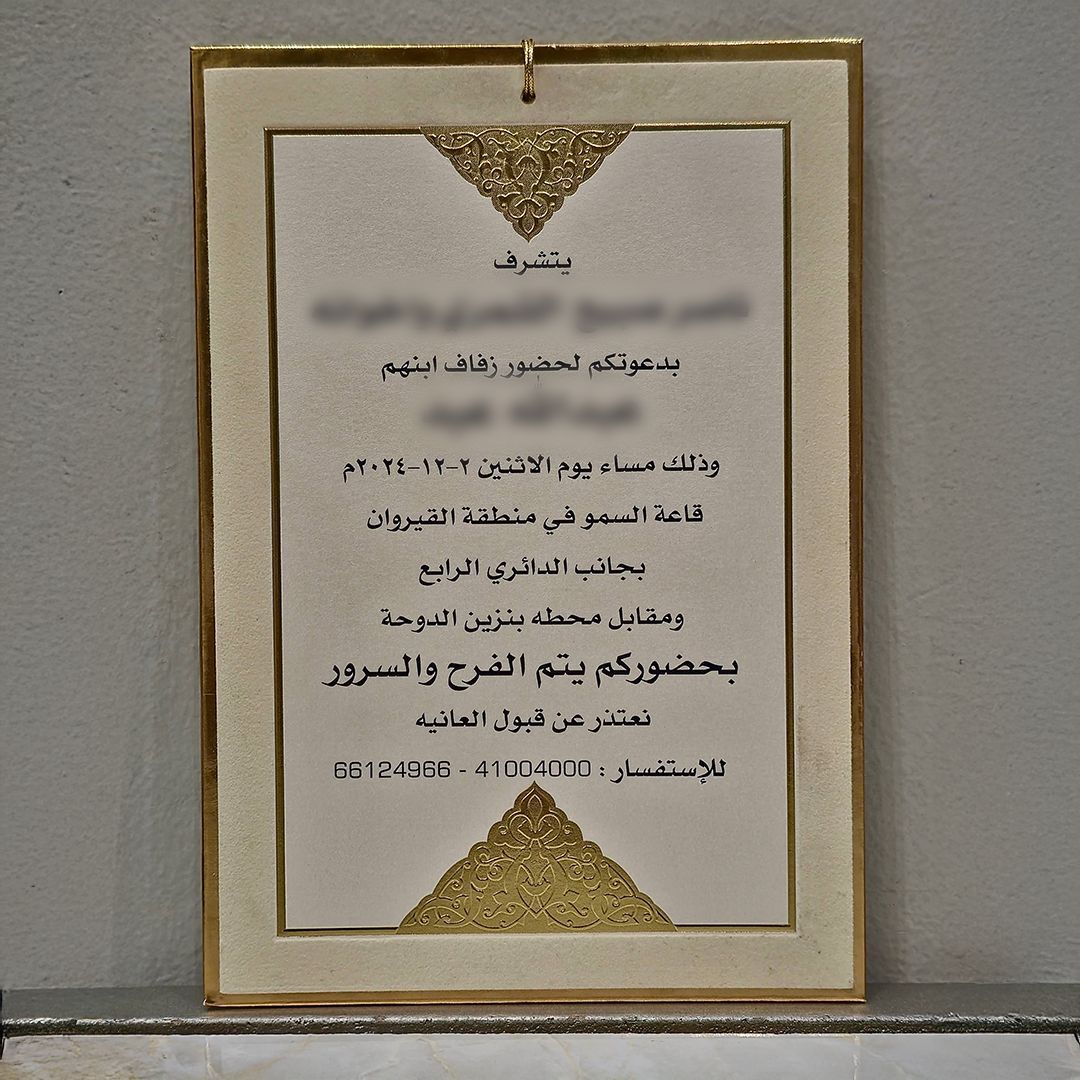 يتشرف
بدعوتكم لحضور زفاف ابنهم
وذلك مساء يوم الاثنين ٢-١٢-٢٠٢٤م
قاعة السمو في منطقة القيروان
بجانب الدائري الرابع
ومقابل محطه بنزين الدوحة
بحضوركم يتم الفرح والسرور
نعتذر عن قبول العانيه
للإستفسار : 41004000 - 66124966